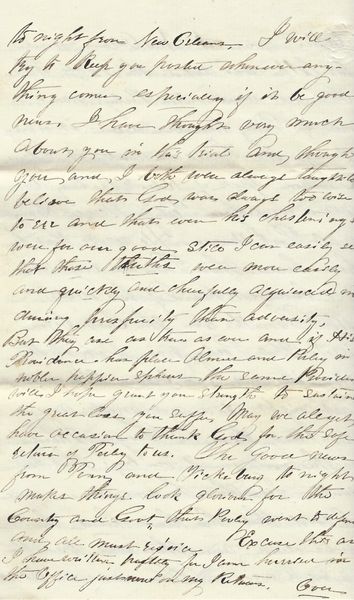 to night from New Orleans. I will
try to keep you posted whenever any-
thing comes especially if it be good
news. I have thought very much
about you in this trial and though
you and I both were always taught to
believe that God was always too wise
to err and that even his chastenings
were for our good, still I can easily see
that those truths were more easily
and quickly and cheerfully acquiesced in
during prosperity than adversity.
But they are as true as ever and if this
Providence has placed and Perley in
nobler happier spheres the same Providence
will I hope grant you strength to sustain
the great loss you suffer May we all yet
have occasion to thank God for the safe
return of Perley to us. The good news
from and Vicksburg to night
makes things look glorious for the
Country and Govt that Perley went to defend
and all must rejoice Excuse this as
I have written hastily for I am hurried in
the Office just now on my Return. Over